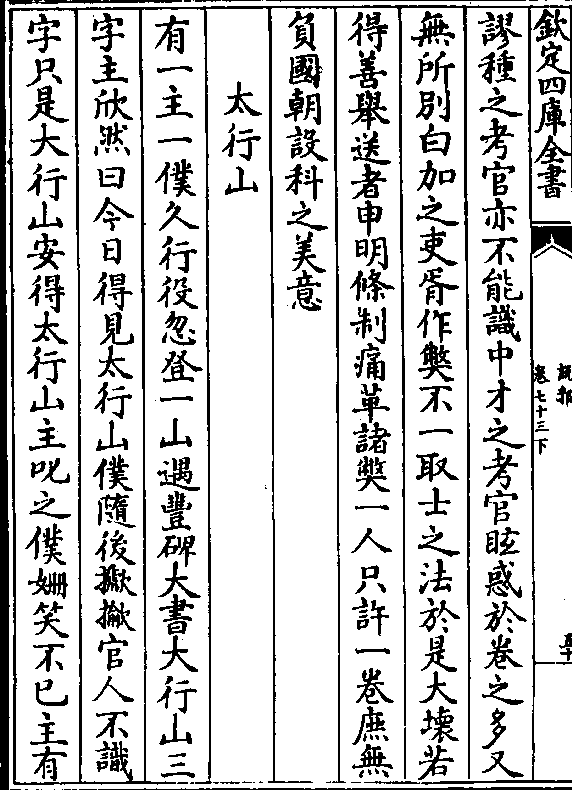 欽定四庫全書
說郛
卷七十三下
謬種之考官亦不能識中才之考官眩惑於卷之多又
無所別白加之吏胥作弊不一取士之法於是大壞若
得善舉送者申明條制痛革諸弊一人只許一卷庶無
負國朝設科之美意
太行山
有一主一僕久行役忽登一山遇豐碑大書大行山三
字主欣然曰今日得見太行山僕隨後揶揄官人不識
字只是大行山安得太行山主叱之僕姍笑不已主有